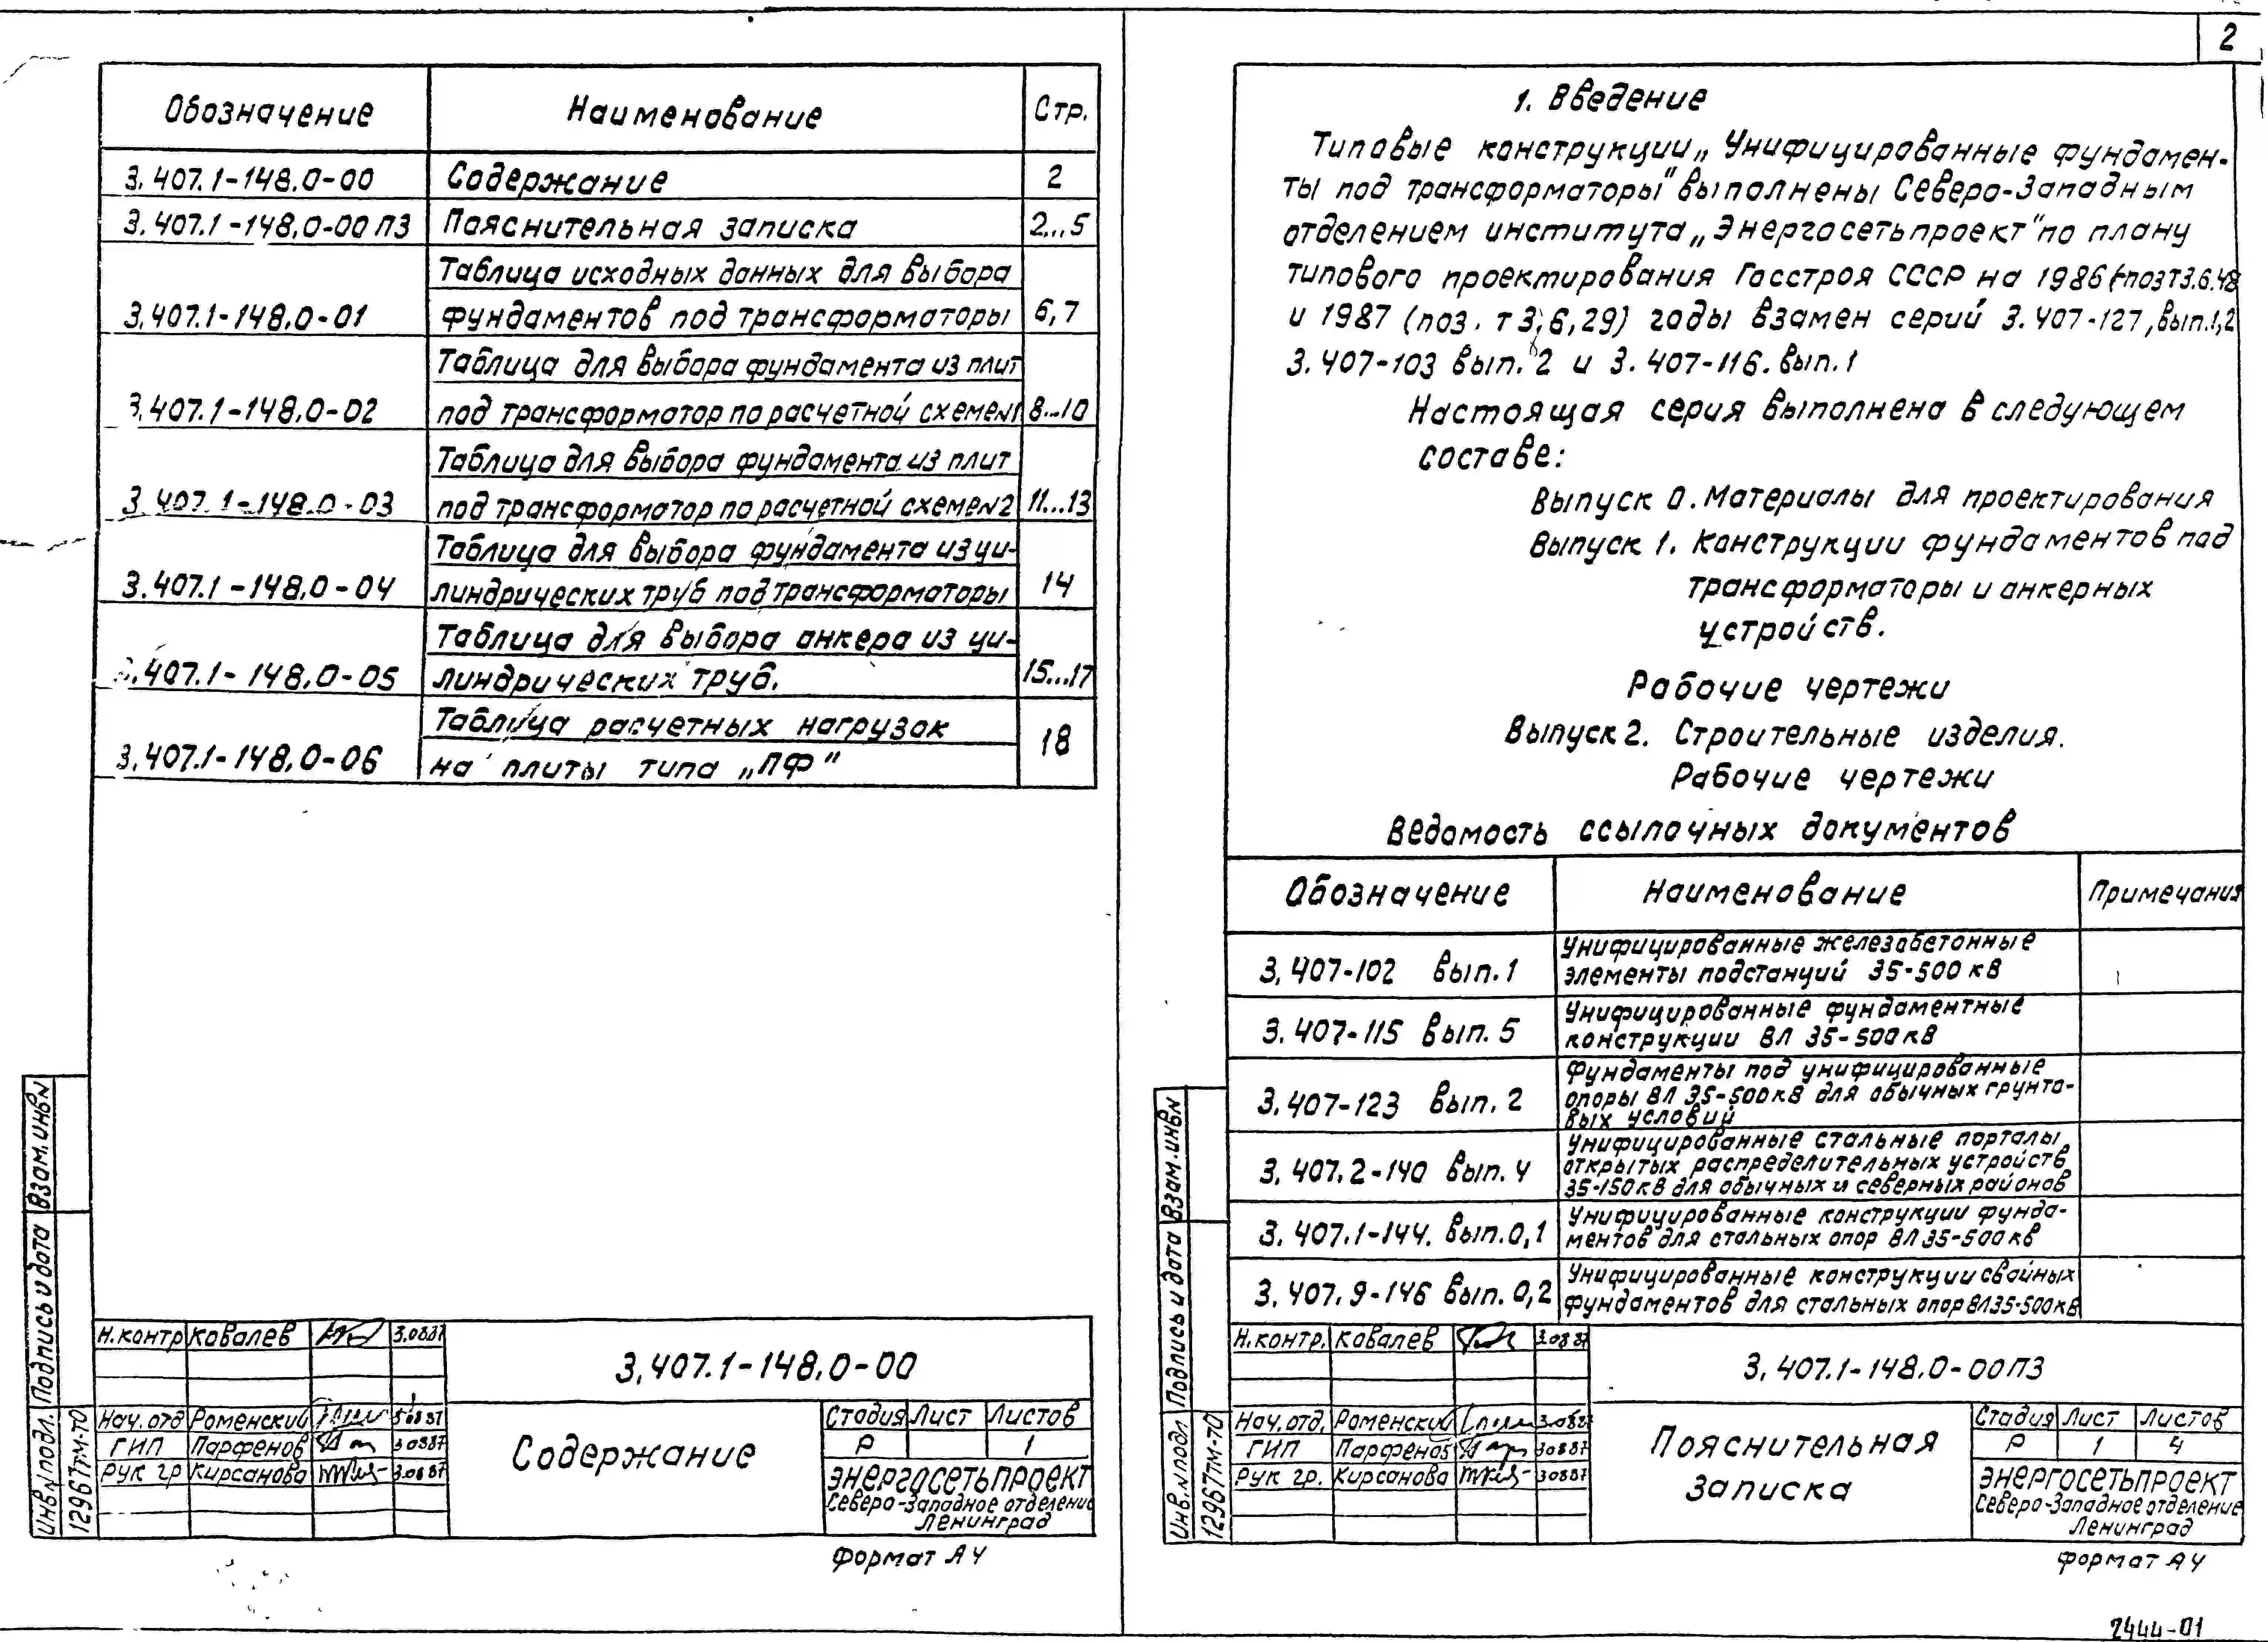 2
Обозначение Наименование Стр.
3.407.1-148.0-00 Содержание 2
3.407.1-148.0-00 ПЗ Пояснительная записка 2...5
Таблица исходных данных для выбора
3.407.1-148.0-01 фундаментов под трансформаторы 6,7
Таблица для выбора фундамента из плит
3.407.1-148.0-02 под трансформатор по расчетной схеме №1 8...10
Таблица для выбора фундамента из плит
3.407.1-148.0-03 под трансформатор по расчетной схеме №2 11...13
Таблица для выбора фундамента из ци-
3.407.1-148.0-04 линдрических труб под трансформаторы 14
Таблица для выбора анкера из ци-
3.407.1-148.0-05 линдрических труб. 15...17
Таблица расчетных нагрузок
3.407.1-148.0-06 на плиты типа „ПФ" 18
Взам.инв№
Подпись и дата
Инв.№подл.
12967тм-т0
Н.контр Ковалев 3.0887
Нач.отд Роменский
ГИП Парфенов 30887
Рук гр Кирсанова 3.0887
3.407.1-148.0-00
Содержание
Стадия Лист Листов
Р 1
ЭНЕРГОСЕТЬПРОЕКТ
Северо-Западное отделение
Ленинград
Формат А4
1. Введение
Типовые конструкции „Унифицированные фундамен-
ты под трансформаторы" выполнены Северо-Западным
отделением института „Энергосетьпроект" по плану
типового проектирования Госстроя СССР на 1986 (поз Т3.6.48
и 1987 (поз. т 3,6,29) годы взамен серий 3.407-127, вып.1,2
3.407-103 вып. 2 и 3.407-116. вып.1
Настоящая серия выполнена в следующем
составе:
Выпуск 0. Материалы для проектирования
Выпуск 1. Конструкции фундаментов под
трансформаторы и анкерных
устройств.
Рабочие чертежи
Выпуск 2. Строительные изделия.
Рабочие чертежи
Ведомость ссылочных документов
Обозначение Наименование Примечания
3.407-102 вып.1 Унифицированные железобетонные
элементы подстанций 35-500 кВ
3.407-115 вып. 5 Унифицированные фундаментные
конструкции ВЛ 35-500кВ
3.407-123 вып. 2 Фундаменты под унифицированные
опоры ВЛ 35-500кВ для обычных грунто-
вых условий
3.407.2-140 вып. 4 Унифицированные стальные порталы
открытых распределительных устройств
35-150кВ для обычных и северных районов
3.407.1-144. вып.0,1 Унифицированные конструкции фунда-
ментов для стальных опор ВЛ 35-500кВ
3.407.9-146 вып. 0,2 Унифицированные конструкции свайных
фундаментов для стальных опор ВЛ35-500кВ
Взам.инв№
Подпись и дата
Инв.№подл
12967тм-т0
Н.контр. Ковалев 30887
Нач.отд. Роменский 3.0887
ГИП Парфенов 30887
Рук гр. Кирсанова 30887
3.407.1-148.0-00ПЗ
Пояснительная
записка
Стадия Лист Листов
Р 1 4
ЭНЕРГОСЕТЬПРОЕКТ
Северо-Западное отделение
Ленинград
Формат А4
2444-01